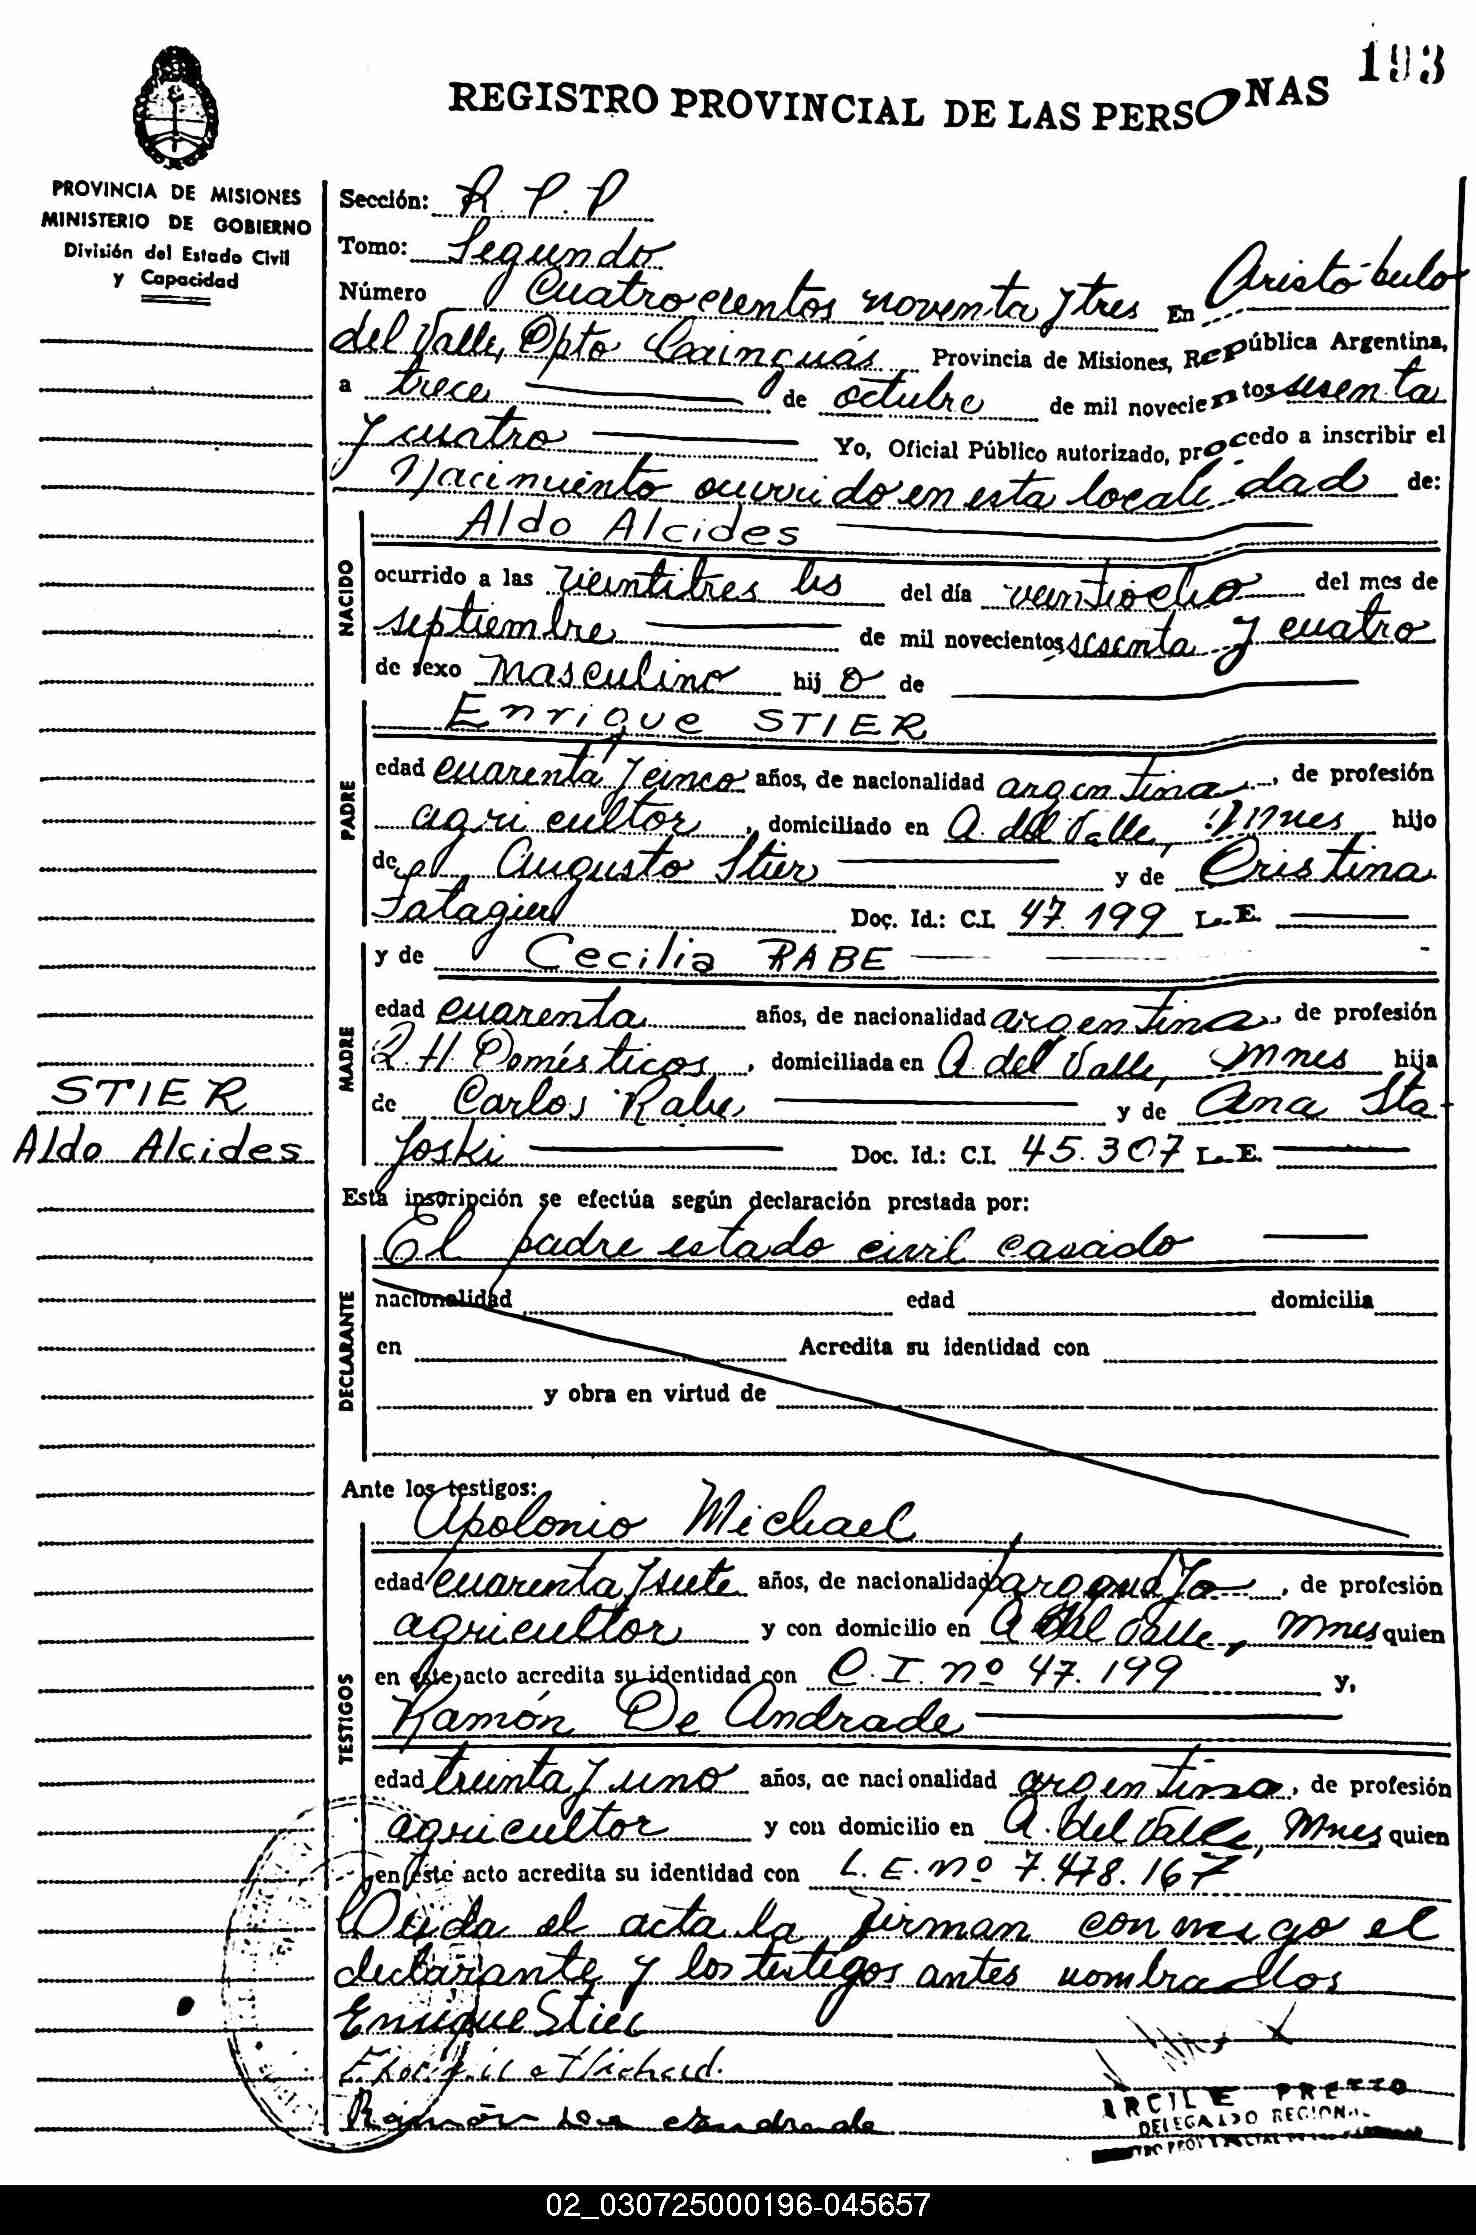 193
REGISTRO PROVINCIAL DE LAS PERSONAS
PROVINCIA DE MISIONES
MINISTERIO DE GOBIERNO
División del Estado Civil
y Capacidad
Sección: R. P. P
Tomo: Segundo
Número Cuatrocientos noventa y tres En Aristóbulo
del Valle, Dpto Cainguás Provincia de Misiones, República Argentina,
a trece de octubre de mil novecientos sesenta
y cuatro Yo, Oficial Público autorizado, procedo a inscribir el
Nacimiento ocurrido en esta localidad de:
NACIDO
Aldo Alcides
ocurrido a las veintitres hs del día veintiocho del mes de
septiembre de mil novecientos sesenta y cuatro
de sexo masculino hijo de
PADRE
Enrique STIER
edad cuarenta y cinco años, de nacionalidad argentina, de profesión
agricultor, domiciliado en A. del Valle, Mnes hijo
de Augusto Stier y de Cristina
Doc. Id.: C.I. 47.199 L.E.
MADRE
y de Cecilia RABE
edad cuarenta años, de nacionalidad argentina, de profesión
Q. H. Domésticos, domiciliada en A. del Valle, Mnes hija
de Carlos Rabe y de Ana Sta-
joski Doc. Id.: C.I. 45.307 L.E.
STIER
Aldo Alcides
Esta inscripción se efectúa según declaración prestada por:
DECLARANTE
El padre estado civil casado
nacionalidad edad domicilia
en Acredita su identidad con
y obra en virtud de
Ante los testigos:
TESTIGOS
Apolonio Michael
edad cuarenta y siete años, de nacionalidad paraguaya, de profesión
agricultor y con domicilio en A. del Valle, Mnes quien
en este acto acredita su identidad con C.I. nº 47.199 y,
Ramón De Andrade
edad treinta y uno años, de nacionalidad argentina, de profesión
agricultor y con domicilio en A. del Valle, Mnes quien
en este acto acredita su identidad con L.E. nº 7.478.167
Leída el acta la firman conmigo el
declarante y los testigos antes nombrados
Enrique Stier
Ramón de Andrade
DELEGADO REGIONAL
02_030725000196-045657